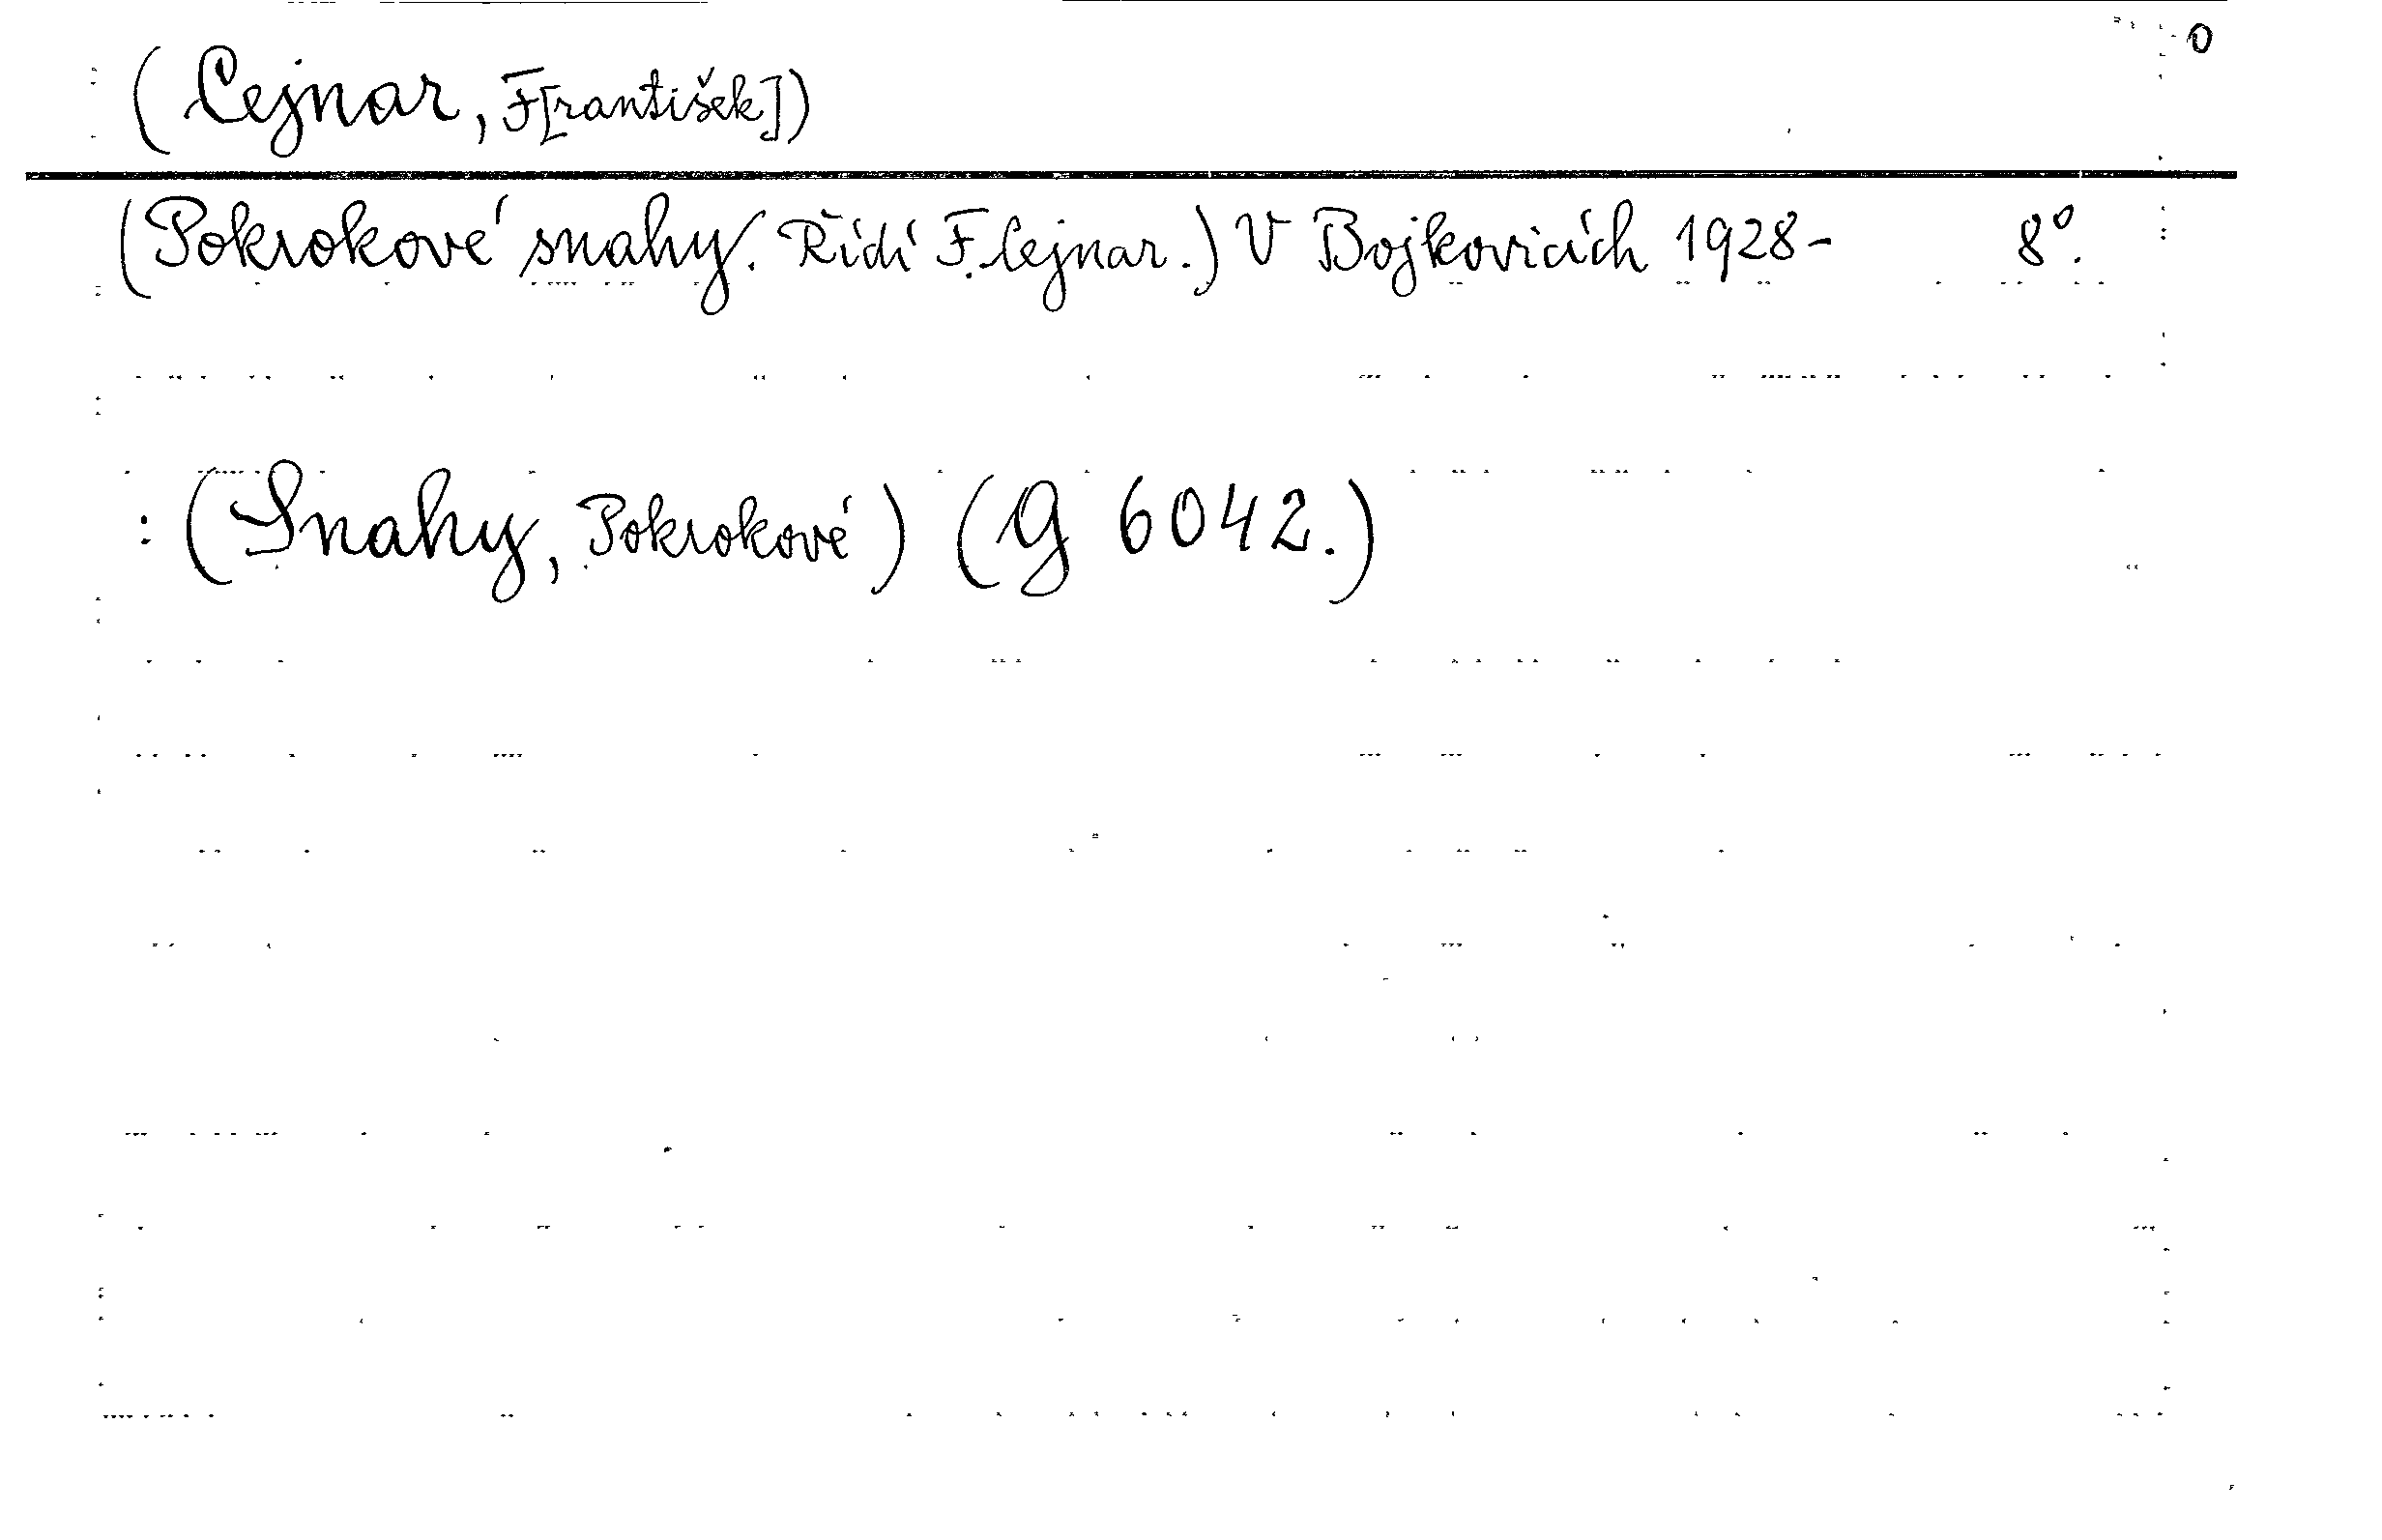 0
(Cejnar, F[rantišek])
(Pokrokové snahy. Řídí F. Cejnar.) V Bojkovicích 1928- 8°.
: (Snahy, Pokrokové) (G 6042.)